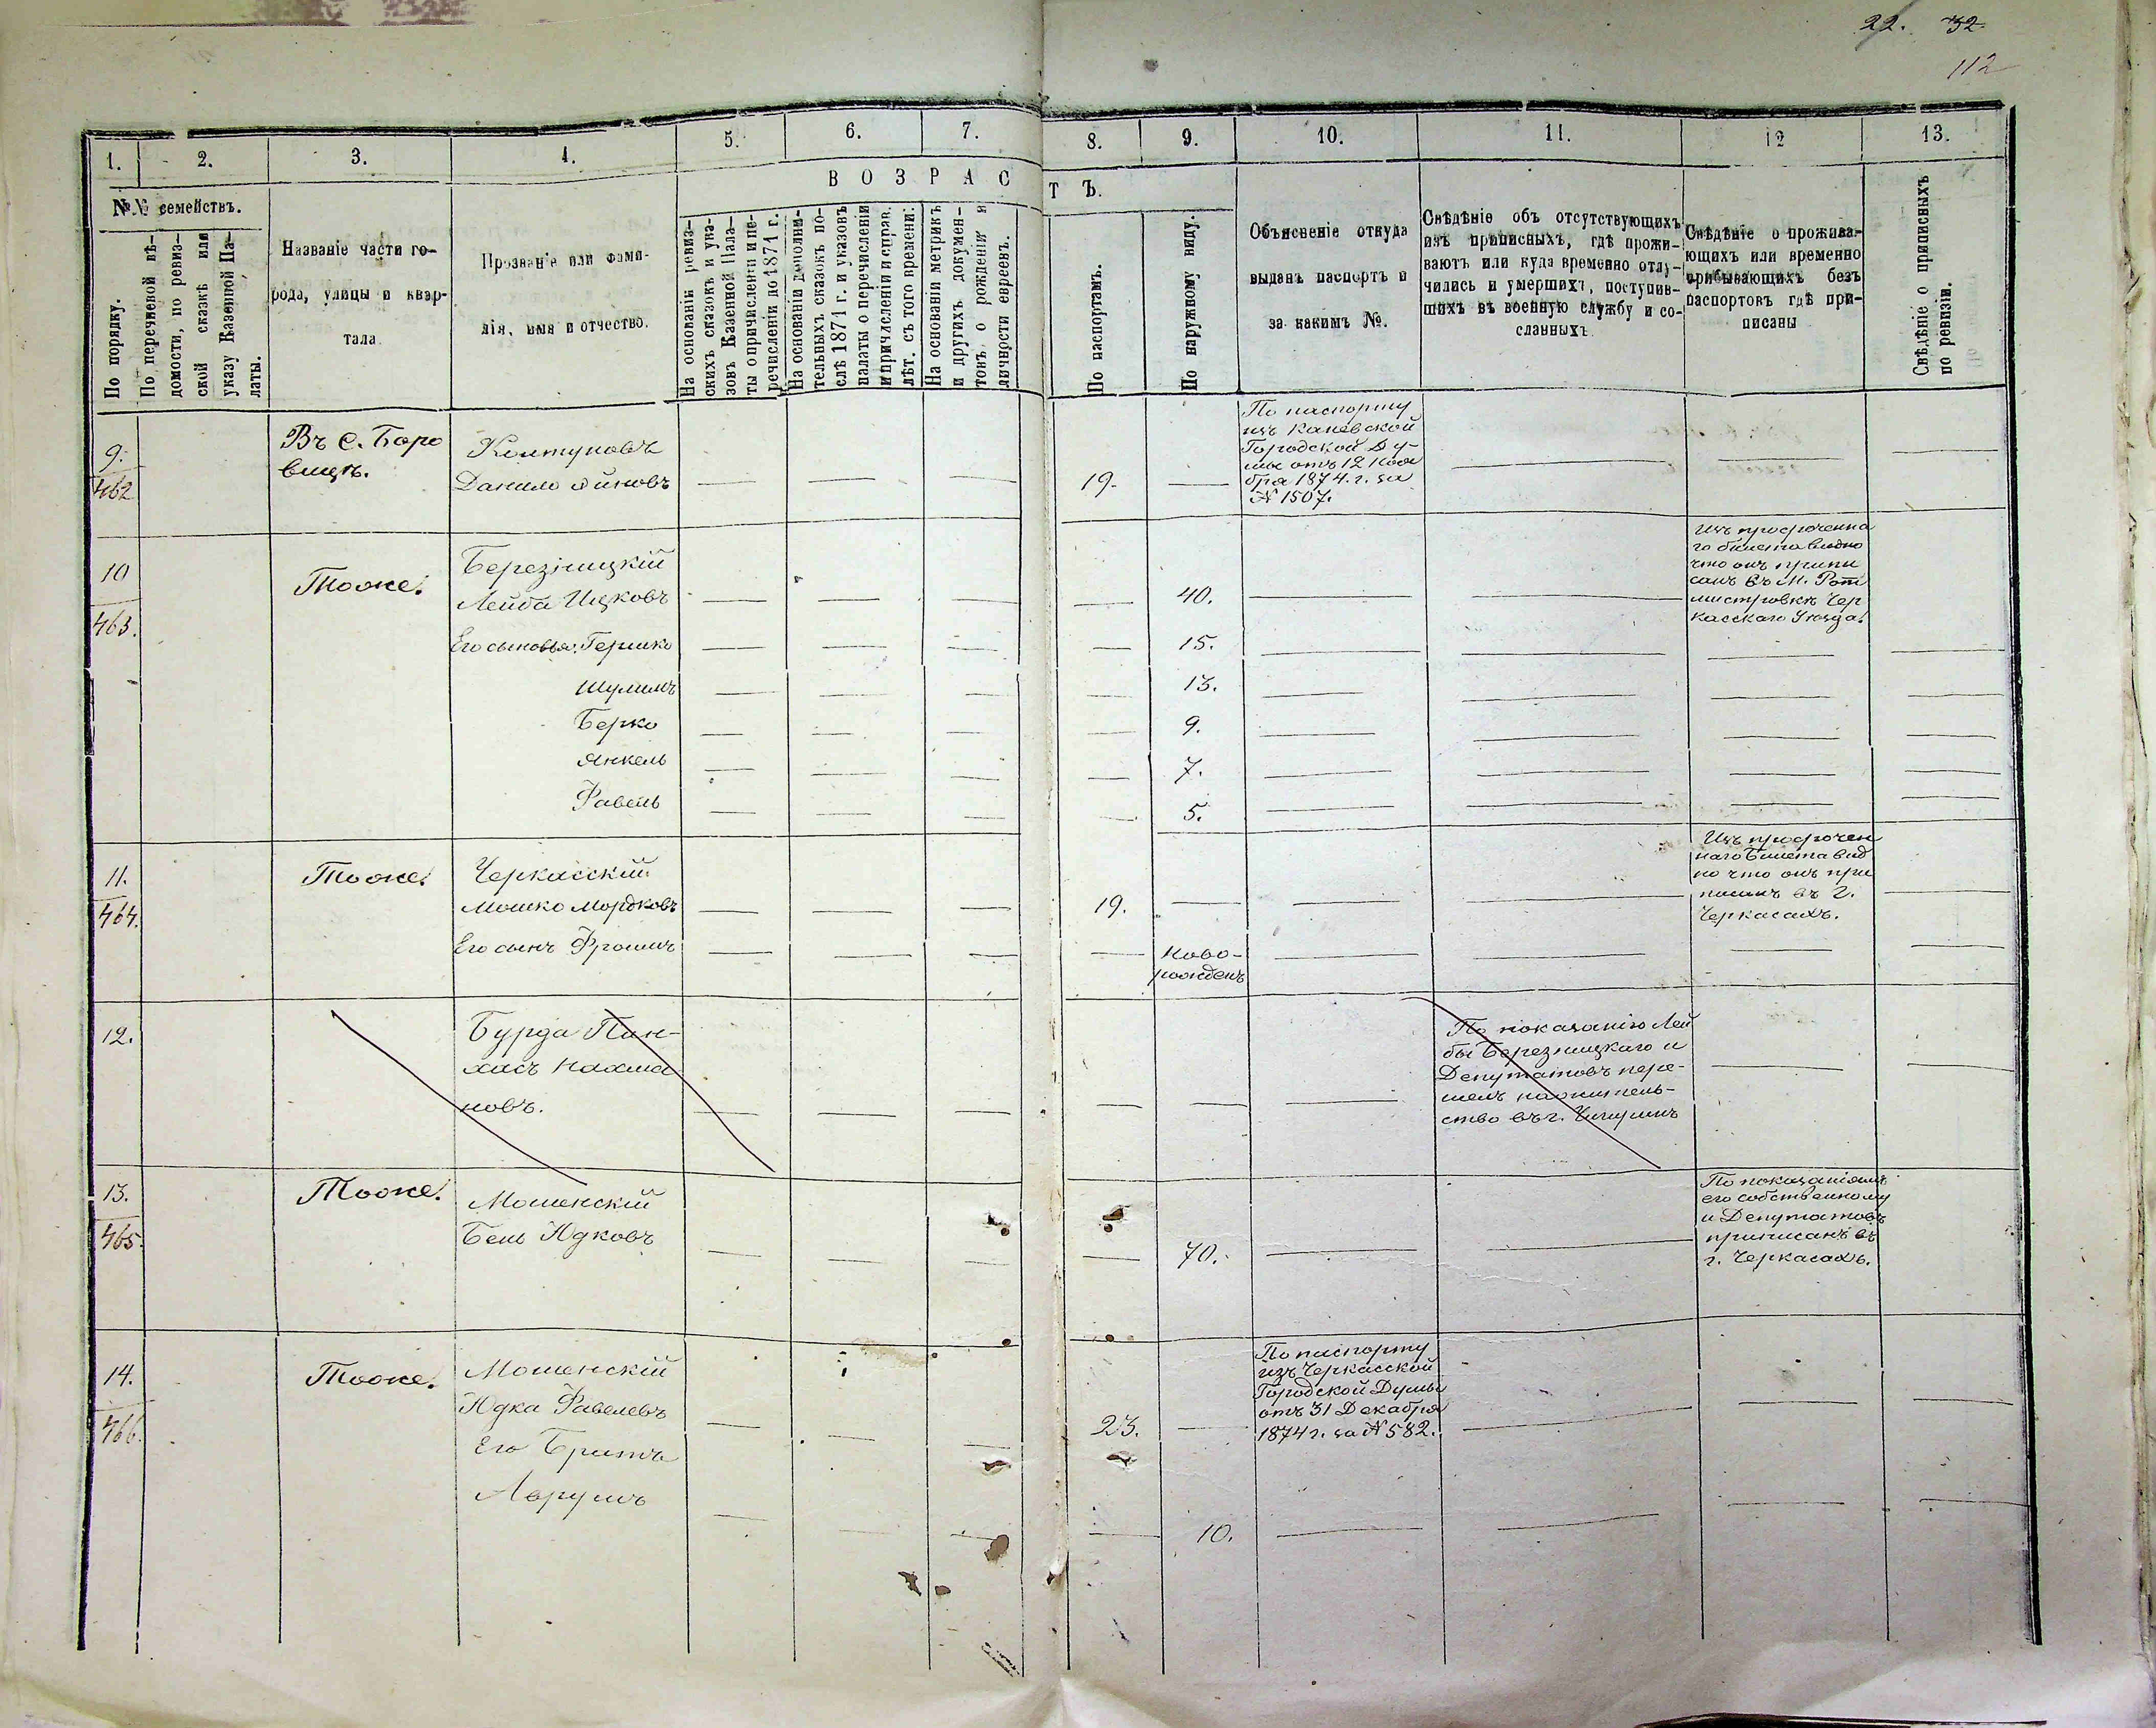 22. 32
112
1. 2. 3. 4. 5. 6. 7. 8. 9. 10. 11. 12 13.
ВОЗРАСТЪ.
№№ семействъ.
По порядку.
По перечневой вѣ-
домости, по ревиз-
ской сказкѣ или
указу Казенной Па-
латы.
Названіе части го-
рода, улицы и квар-
тала
Прозваніе или фами-
лія, имя и отчество.
На основаніи ревиз-
скихъ сказокъ и ука-
зовъ Казенной Пала-
ты о причисленіи и пе-
речисленіи до 1871 г.
На основаніи дополни-
тельныхъ сказокъ по-
слѣ 1871 г. и указовъ
палаты о перечисленіи
и причисленіи и справ.
лѣт. съ того времени.
На основаніи метрикъ
и другихъ докумен-
товъ о рожденіи и
личности евреевъ.
По паспортамъ.
По наружному виду.
Объясненіе откуда
выданъ паспортъ и
за какимъ №.
Свѣдѣніе объ отсутствующихъ
изъ приписныхъ, гдѣ прожи-
ваютъ или куда временно отлу-
чились и умершихъ, поступив-
шихъ въ военную службу и со-
сланныхъ
Свѣдѣніе о прожива-
ющихъ или временно
прибывающихъ безъ
паспортовъ гдѣ при-
писаны
Свѣдѣніе о приписныхъ
по ревизіи.
9.
462
Въ С. Боро
вицѣ.
Колтуновъ
Данило
19.
По паспорту
изъ Каневской
Городской Ду-
мы отъ 12 Ноя
бря 1874. г. за
№ 1507.
10
463.
Тоже.
Березницкій
Лейба Ицковъ
40.
Изъ просроченна
го билета видно
что онъ припи
санъ въ М. Рот
мистровкѣ Чер
касскаго Уѣзда.
Его сыновья: Гершко
15.
Шулимъ
13.
Берко
9.
Янкель
7.
Фавель
5.
11.
464.
Тоже.
Черкасскій
Мошко Мордковъ
19.
Изъ просрочен
наго Билета вид
но что онъ при
писанъ въ г.
Черкасахъ.
Его сынъ Фроимъ
Ново-
рожденъ
12.
Бурда Пин-
хасъ Нахма
новъ.
По показанію Лей
бы Березницкаго и
Депутатовъ пере-
шелъ на жительь-
ство въ г. Чигиринъ
13.
465.
Тоже.
Мошенскій
Бень Юдковъ
70.
По показаніямъ
его собственному
и Депутатовъ
приписанъ въ
г. Черкасахъ.
14.
466.
Тоже.
Мошенскій
Юдка Фавелевъ
23.
По паспорту
изъ Черкасской
Городской Думы
отъ 31 Декабря
1874 г. за № 582.
Его Братъ
Аврумъ
10.